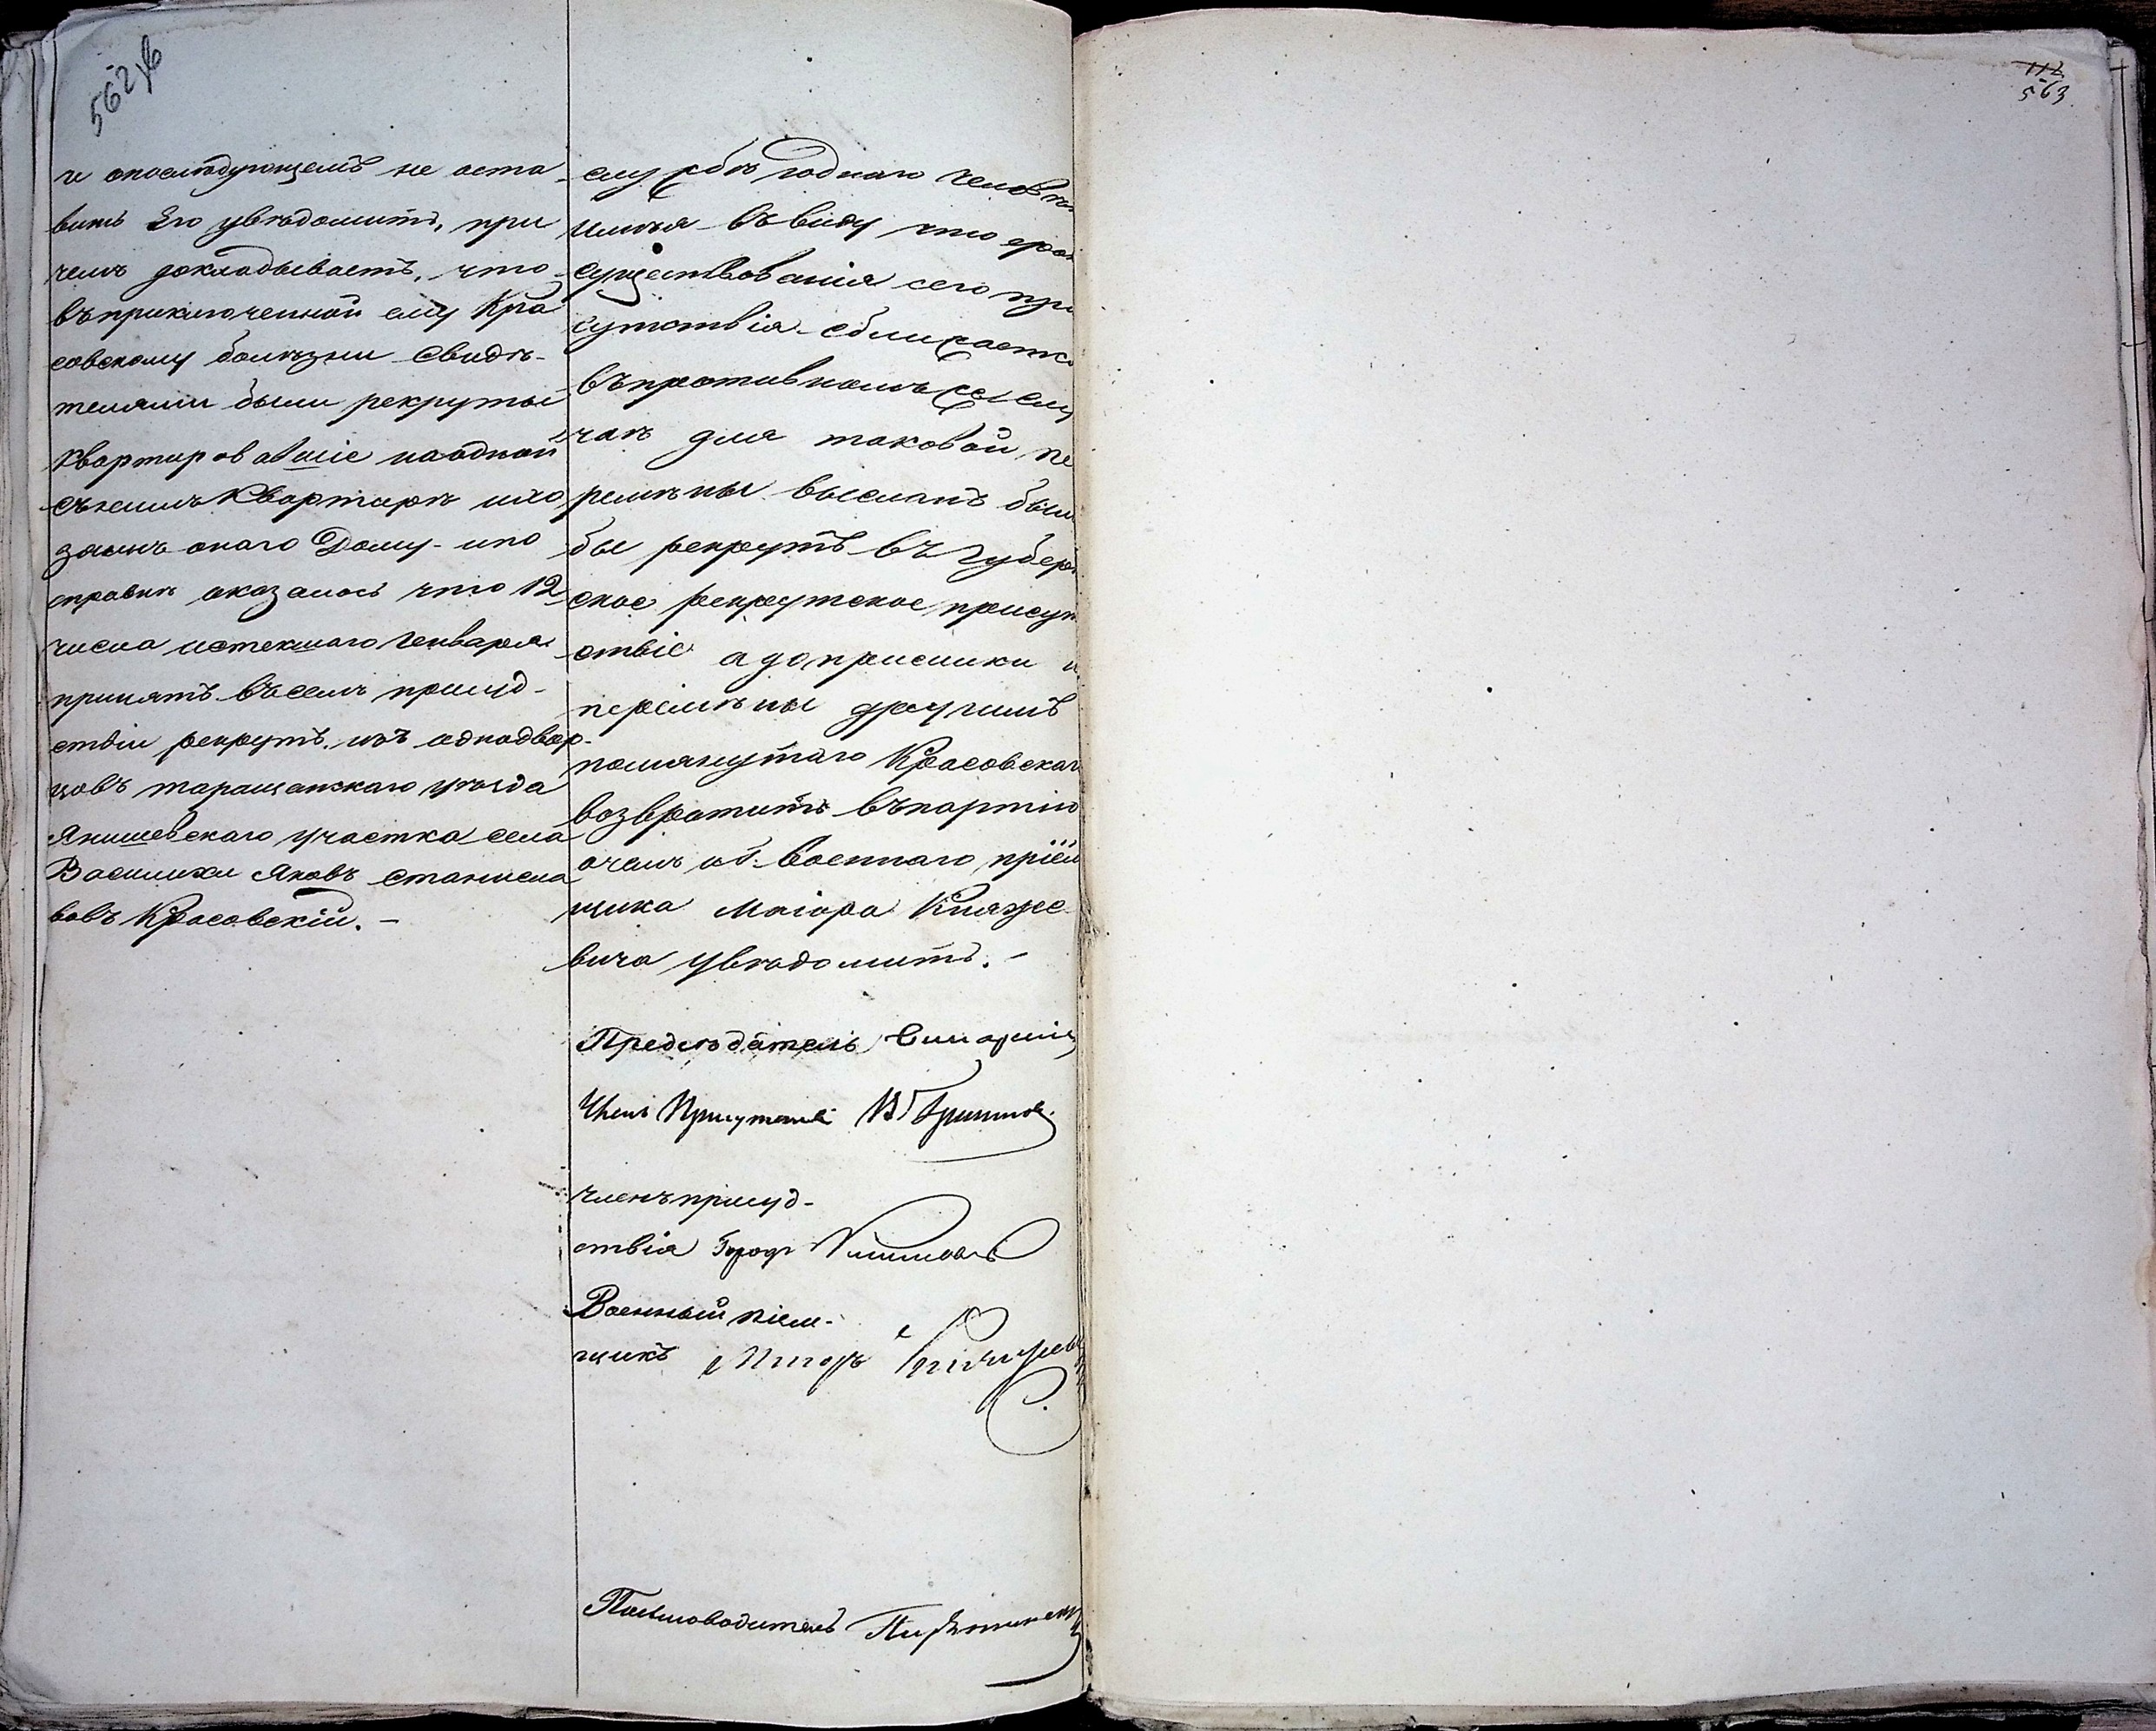 562 об
и опослѣдующемъ не оста-
вить Его увѣдомить, при
чемъ докладываетъ, что
въприключенной ему Кра
совскому болѣзни свидѣ-
телями были рекруты
квартировавшіе наодной
сънимъ квартирѣ ихо
заинъ онаго Дому - ипо
справкѣ оказалось что 12
числа истекшаго Генваря
принятъ въсемъ присуд-
ствіи рекрутъ изъ однодвор-
цовъ таращанскаго уѣзда
Янишевскаго участка села
Василихи Яковъ Станисла
вовъ Красовскій. -
службѣ годнаго человѣ
имѣя въвиду что срок
существованія сего при
сутствія сближается
въпротивномъ же слу
чаѣ для таковой пе
ремѣны высланъ былъ
бы рекрутъ въ Губерн
ское рекрутское присут
ствіе адоприсылки и
перемѣны другимъ
помянутаго Красовскаг
возвратить въпартію
очемъ и военнаго пріем
щика Маіора Княже-
вича увѣдомить. -
Предсѣдатель
Членъ Присутствія
членъ присуд-
ствія Город
Военный піем-
щикъ Маіоръ Княжеви
Письмоводитель
112
563